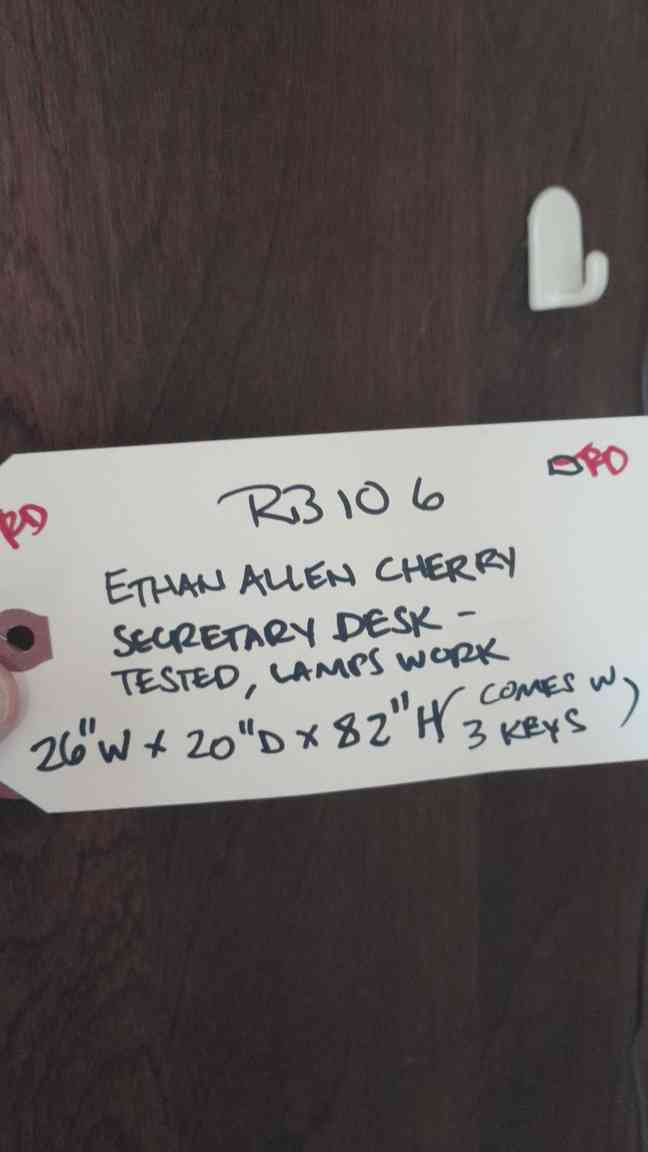 RD
RD
RB106
ETHAN ALLEN CHERRY
SECRETARY DESK -
TESTED, LAMPS WORK
26"W x 20"D x 82"H (COMES W
3 KEYS)